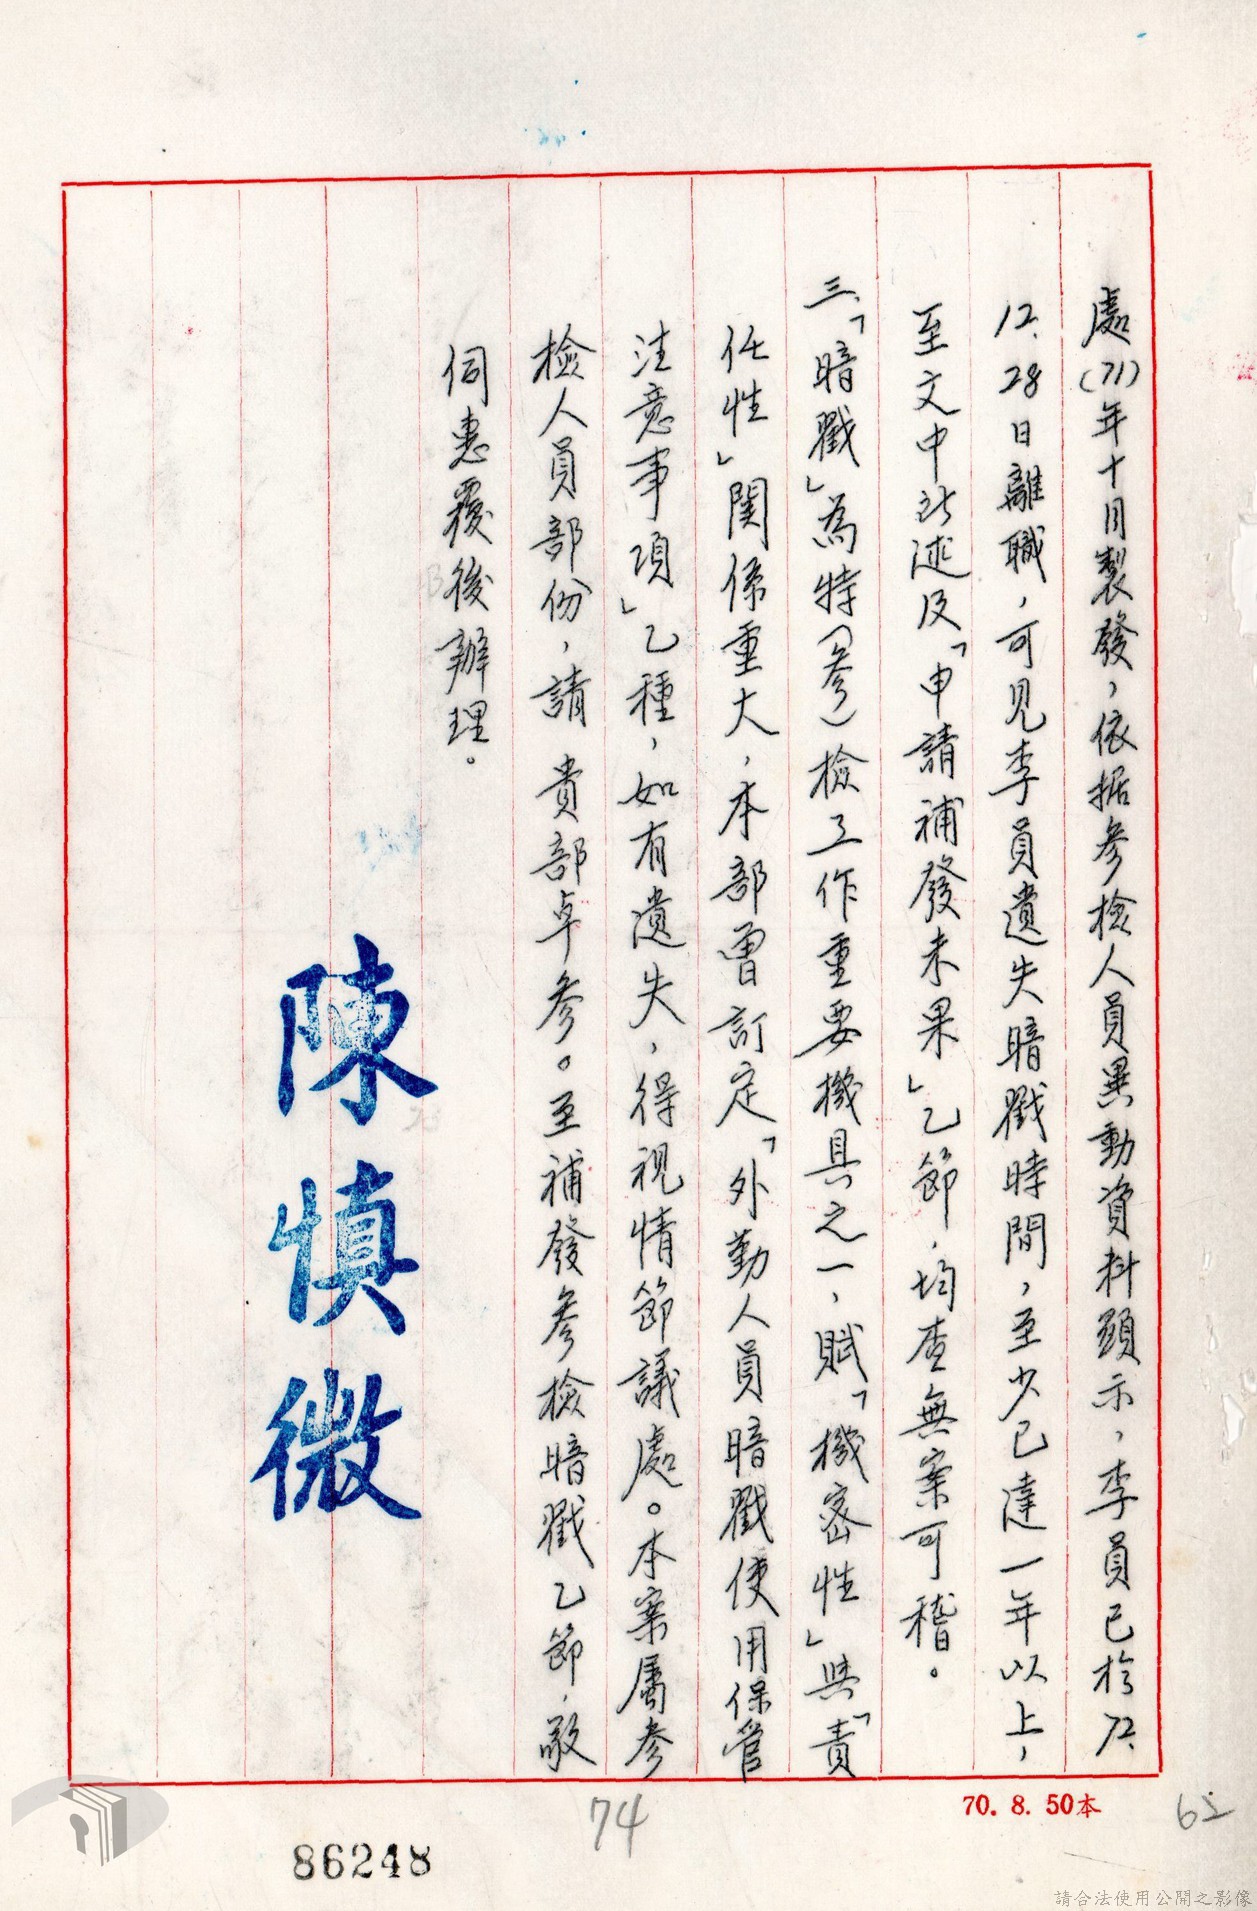 處(71)年十月製發，依据參檢人員異動資料顯示，李員已於72.
12.28日離職，可見李員遺失暗戳時間，至少已達一年以上，
至文中所述及「申請補發未果」乙節，均查無案可稽。
三、「暗戳」為特(參)檢工作重要機具之一，賦「機密性」與「責
任性」關係重大，本部曾訂定「外勤人員暗戳使用保管
注意事項」乙種，如有遺失，得視情節議處。本案屬參
檢人員部份，請 貴部卓參。至補發參檢暗戳乙節，敬
伺惠覆後辦理。
陳慎微
70.8.50本
74
62
86248
請合法使用公開之影像